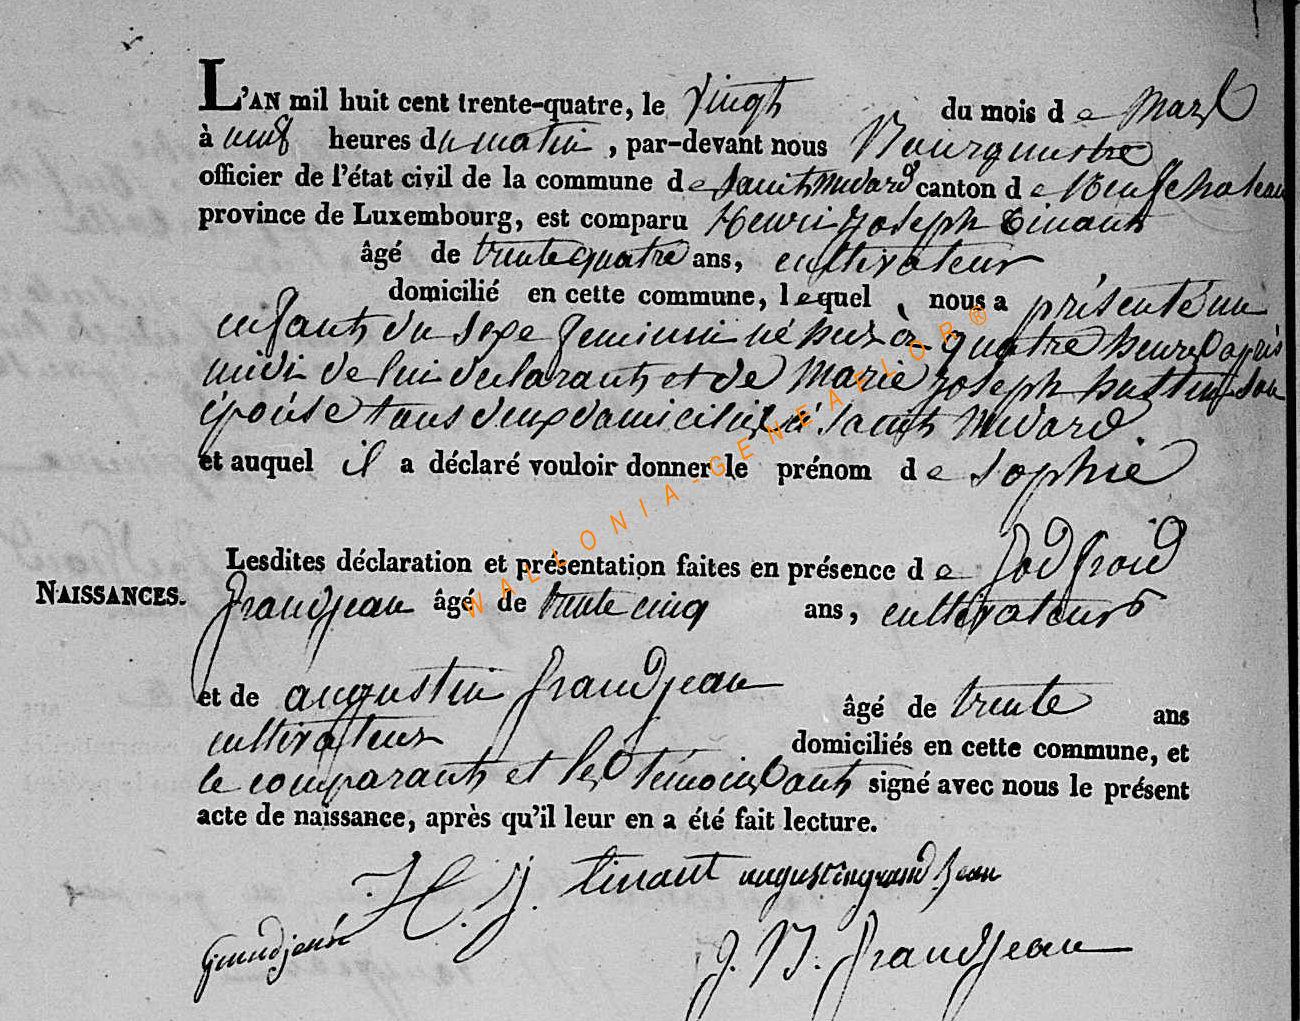 L'AN mil huit cent trente-quatre, le vingt du mois de Mars
à neuf heures du matin, par-devant nous Bourgmestre
officier de l'état civil de la commune de Saint Medard canton de Neufchateau
province de Luxembourg, est comparu Henri Joseph Tinant
âgé de trente quatre ans, cultivateur
domicilié en cette commune, lequel nous a présenté un
enfant du sexe feminin né hier à quatre heures après
midi de lui declarant et de Marie Joseph huttin son
épouse tous deux domiciliés à Saint Medard.
et auquel il a déclaré vouloir donner le prénom de Sophie
Lesdites déclaration et présentation faites en présence de Godfroid
NAISSANCES.
Grandjean âgé de trente cinq ans, cultivateur
et de augustin Grandjean âgé de trente ans
cultivateur domiciliés en cette commune, et
le comparant et les témoins ont signé avec nous le présent
acte de naissance, après qu'il leur en a été fait lecture.
H. J. tinant augustin grand Jean
Grandjean
J. B. Grandjean
WALLONIA-GENEAFLOR®